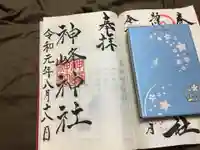 奉
社
月
奉拝
神峰神社
令和元年八月十八日